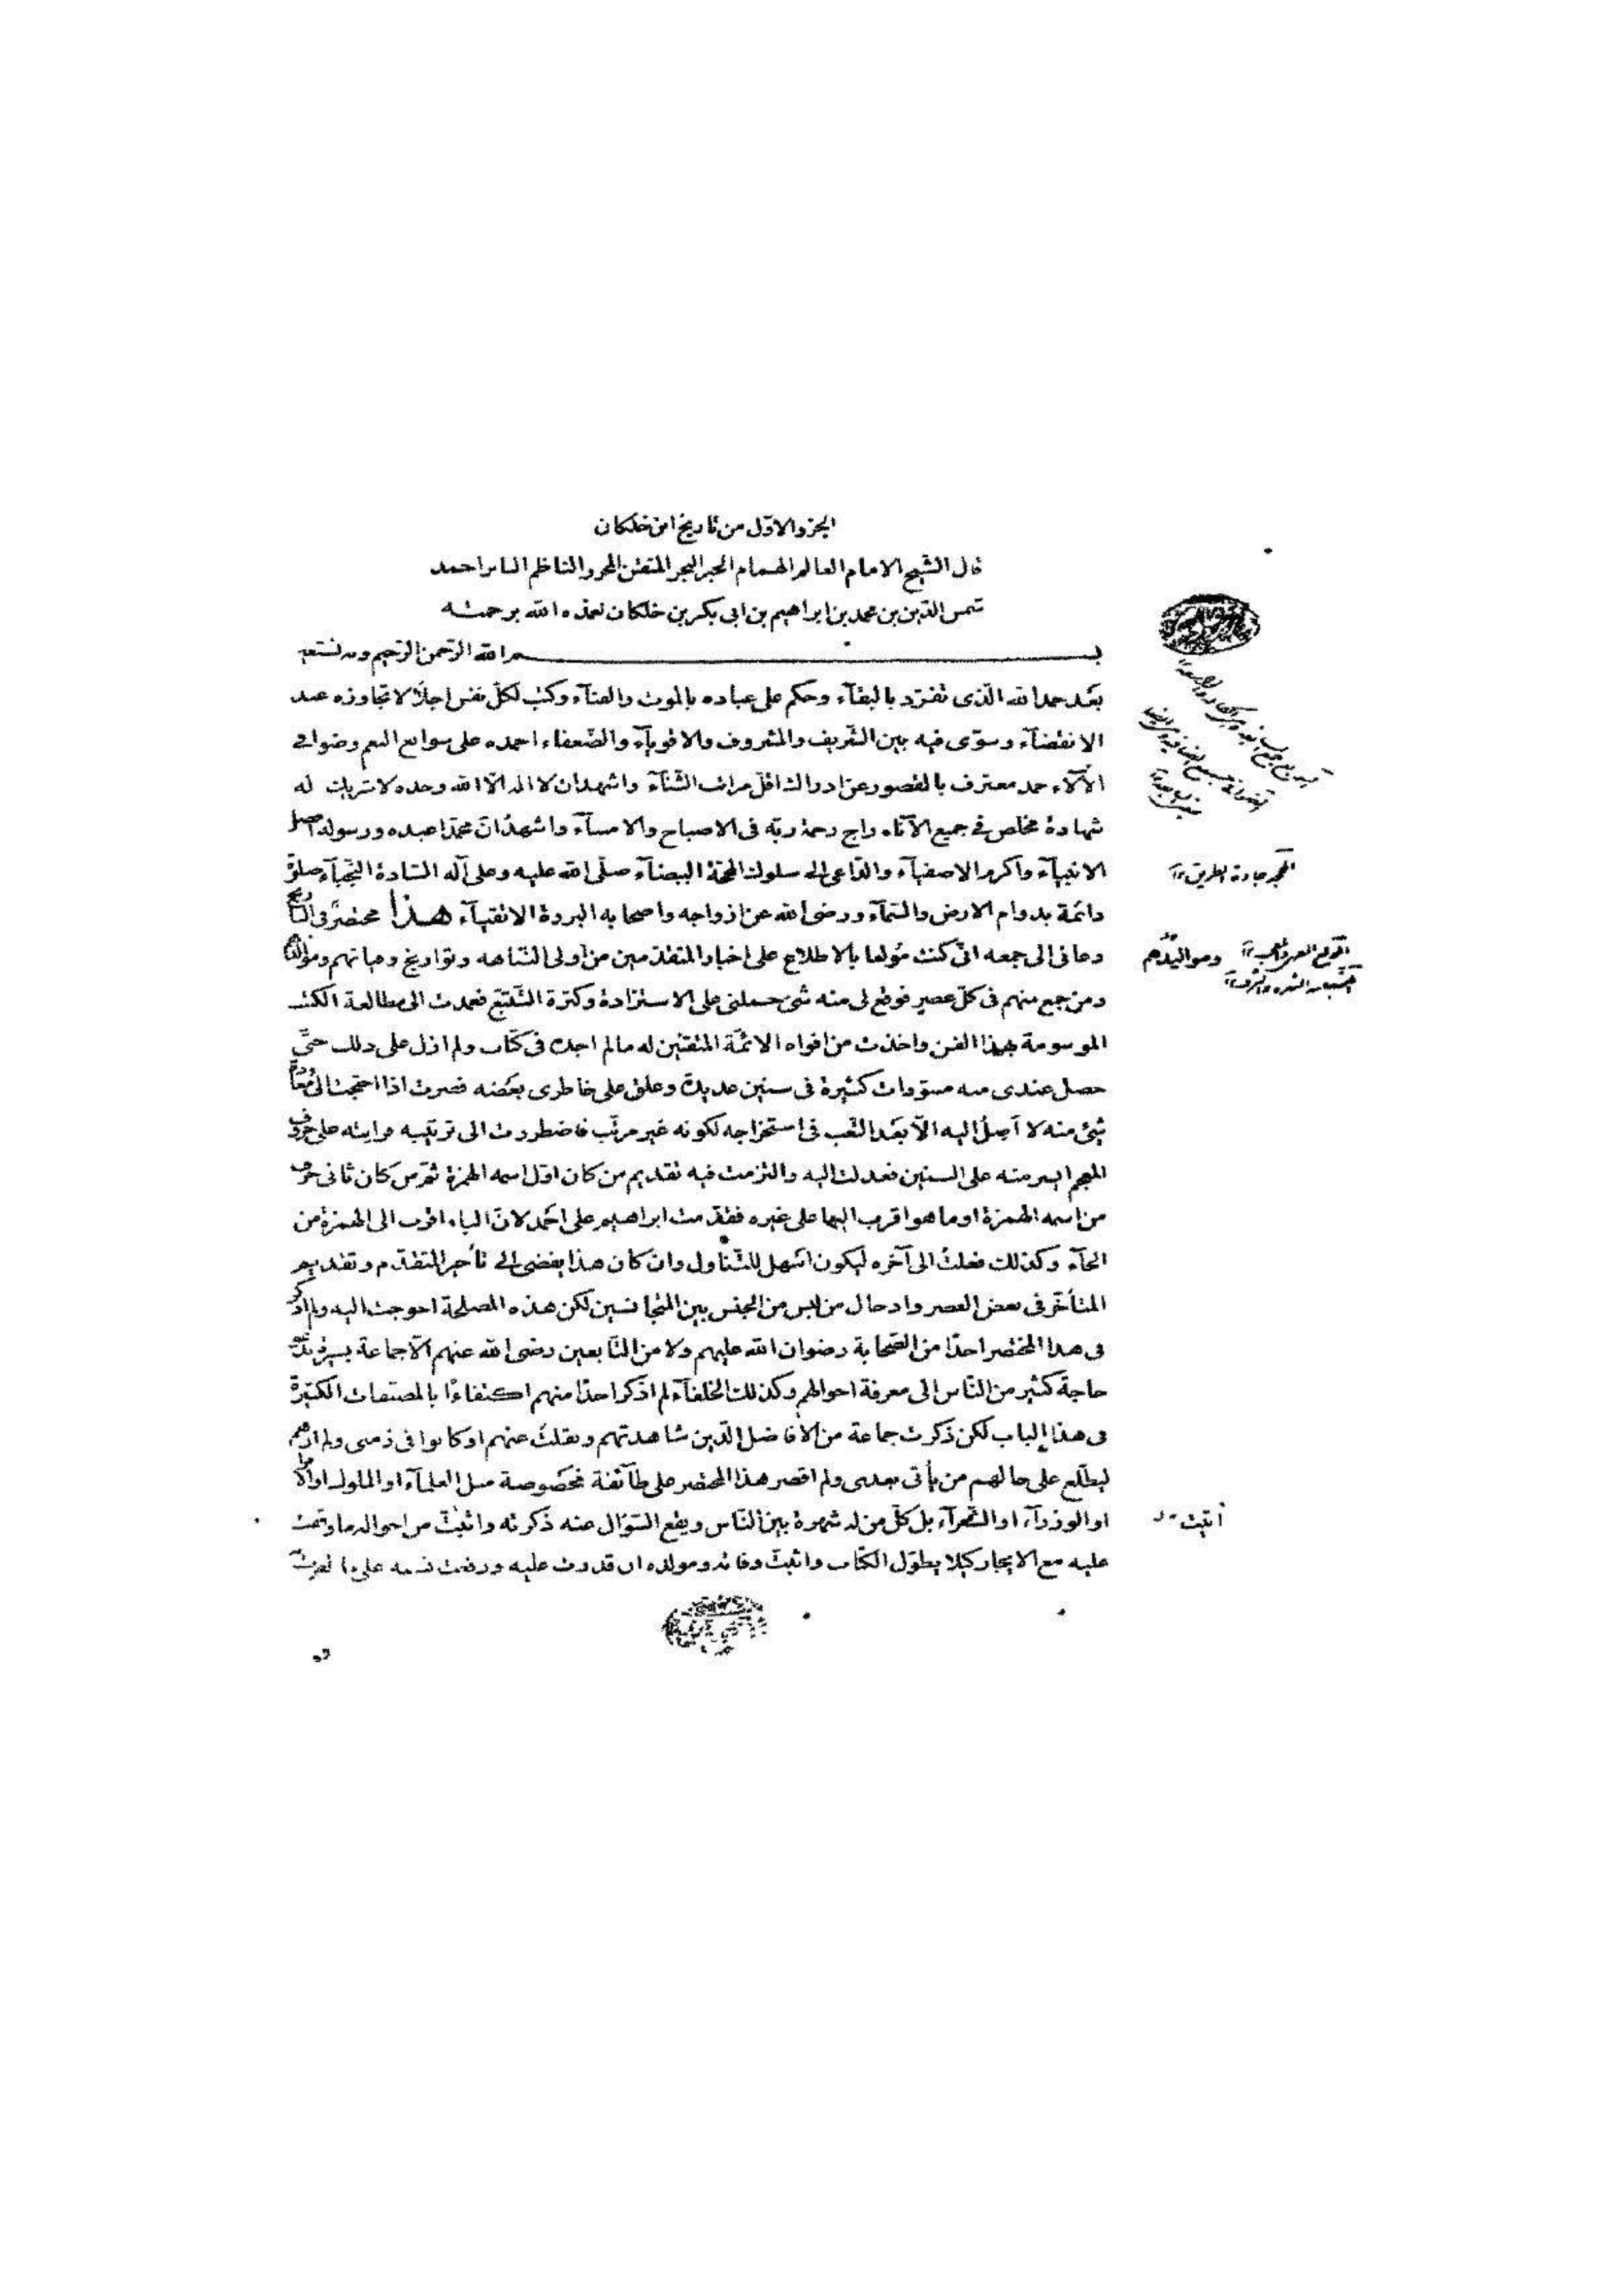 الجزء الاوّل من تاريخ ابن خلكان
قال الشيخ الامام العالم الهمام الحبر البحر المتقن المحرر الناظم الناثر احمد
شمس الدّين بن محمد بن ابراهيم بن ابى بكر بن خلكان تغمّده الله برحمته
بسم الله الرّحمن الرّحيم وبه نستعين
بعَد حمد الله الّذى تفرّد بالبقآء وحكم على عباده بالموت والفنآء وكتب لكلّ نفس اجلًا لا تجاوزه عند
الانقضآء وسوّى فيه بين الشّريف والمشروف والاقويآء والضّعفاء احمده على سوابع النعم وضوافى
الآلآء حمد معترف بالقصور عن ادراك اقلّ مراتب الثّنآء واشهد ان لا اله الّا الله وحده لا شريك له
شهادة مخلص فى جميع الآناء راج رحمة ربّه فى الاصباح والامسآء واشهد انّ محمّدا عبده ورسوله افضل
الانبيآء واكرم الاصفيآء والدّاعى الى سلوك المحجّة البيضآء صلّى الله عليه وعلى آله السّادة النّجبآء صلوة
دائمة بدوام الارض والسّمآء ورضى الله عن ازواجه واصحابه البررة الاتقيآء هذا مختصر فى التاريخ
دعانى الى جمعه انّى كنت مُولعا بالاطلاع على اخبار المتقدّمين من اولى النّباهه وتواريخ وفياتهم وموالدهم
ومن جمع منهم فى كلّ عصر فوقع لى منه شئ حملنى على الاستزادة وكثرة التّتبّع فعمدت الى مطالعة الكتب
الموسومة بهذا الفن واخذت من افواه الائمّة المتقنين له ما لم اجده فى كتاب ولم ازل على ذلك حتّى
حصل عندى منه مسوّدات كثيرة فى سنين عديدة وعلق على خاطرى بعَضه فصرت اذا احتجت الى معاودة
شئ منه لا اَصِلُ اليه الّا بعَد التّعب فى استخراجه لكونه غير مرتّب فاضطررت الى ترتيبه فرايته على حروف
المعجم ايسر منه على السنين فعدلت اليه والتزمت فيه تقديم من كان اوّل اسمه الهمزة ثمّ من كان ثانى حرف
من اسمه الهمزة او ما هو اقرب اليها على غيره فقدّمت ابراهيم على احَمد لانّ الباء اقرب الى الهمزة من
الحآء وكذلك فعلتُ الى آخره ليكون اسَهل للتّناول وان كان هذا يفضى الى تأخير المتقدّم وتقديم
المتأخّر فى بعض العصر وادخال من ليس من الجنس بين المتجانسين لكن هذه المصلحة احوجت اليه ولم اذكر
فى هذا المختصر احدًا من الصّحابة رضوان الله عليهم ولا من التّابعين رضى الله عنهم الّا جماعة يسيرة تدعو
حاجة كثير من النّاس الى معرفة احوالهم وكذلك الخلفآء لم اذكر احدًا منهم اكتفاءًا بالمصنّفات الكثيرة
فى هذا الباب لكن ذكرت جماعة من الافاضل الّذين شاهدتهم ونقلت عنهم او كانوا فى زمنى ولم ارهم
ليطّلع على حالهم من يأتى بعدى ولم اقصر هذا المختصر على طآئفة مخصَوصة مثل العلمآء او الملوك او الامرآء
او الوزرآء او الشّعرآء بل كلّ من له شهرة بين النّاس ويقع السّؤال عنه ذكرته واثبتّ من احواله ما وقفت
عليه مع الايجاز كيلا يطوّل الكتاب واثبتّ وفاته ومولده ان قدرت عليه ورفعت نسبه على ما
المحجّة جادة الطريق
ومواليدهم
أتيت